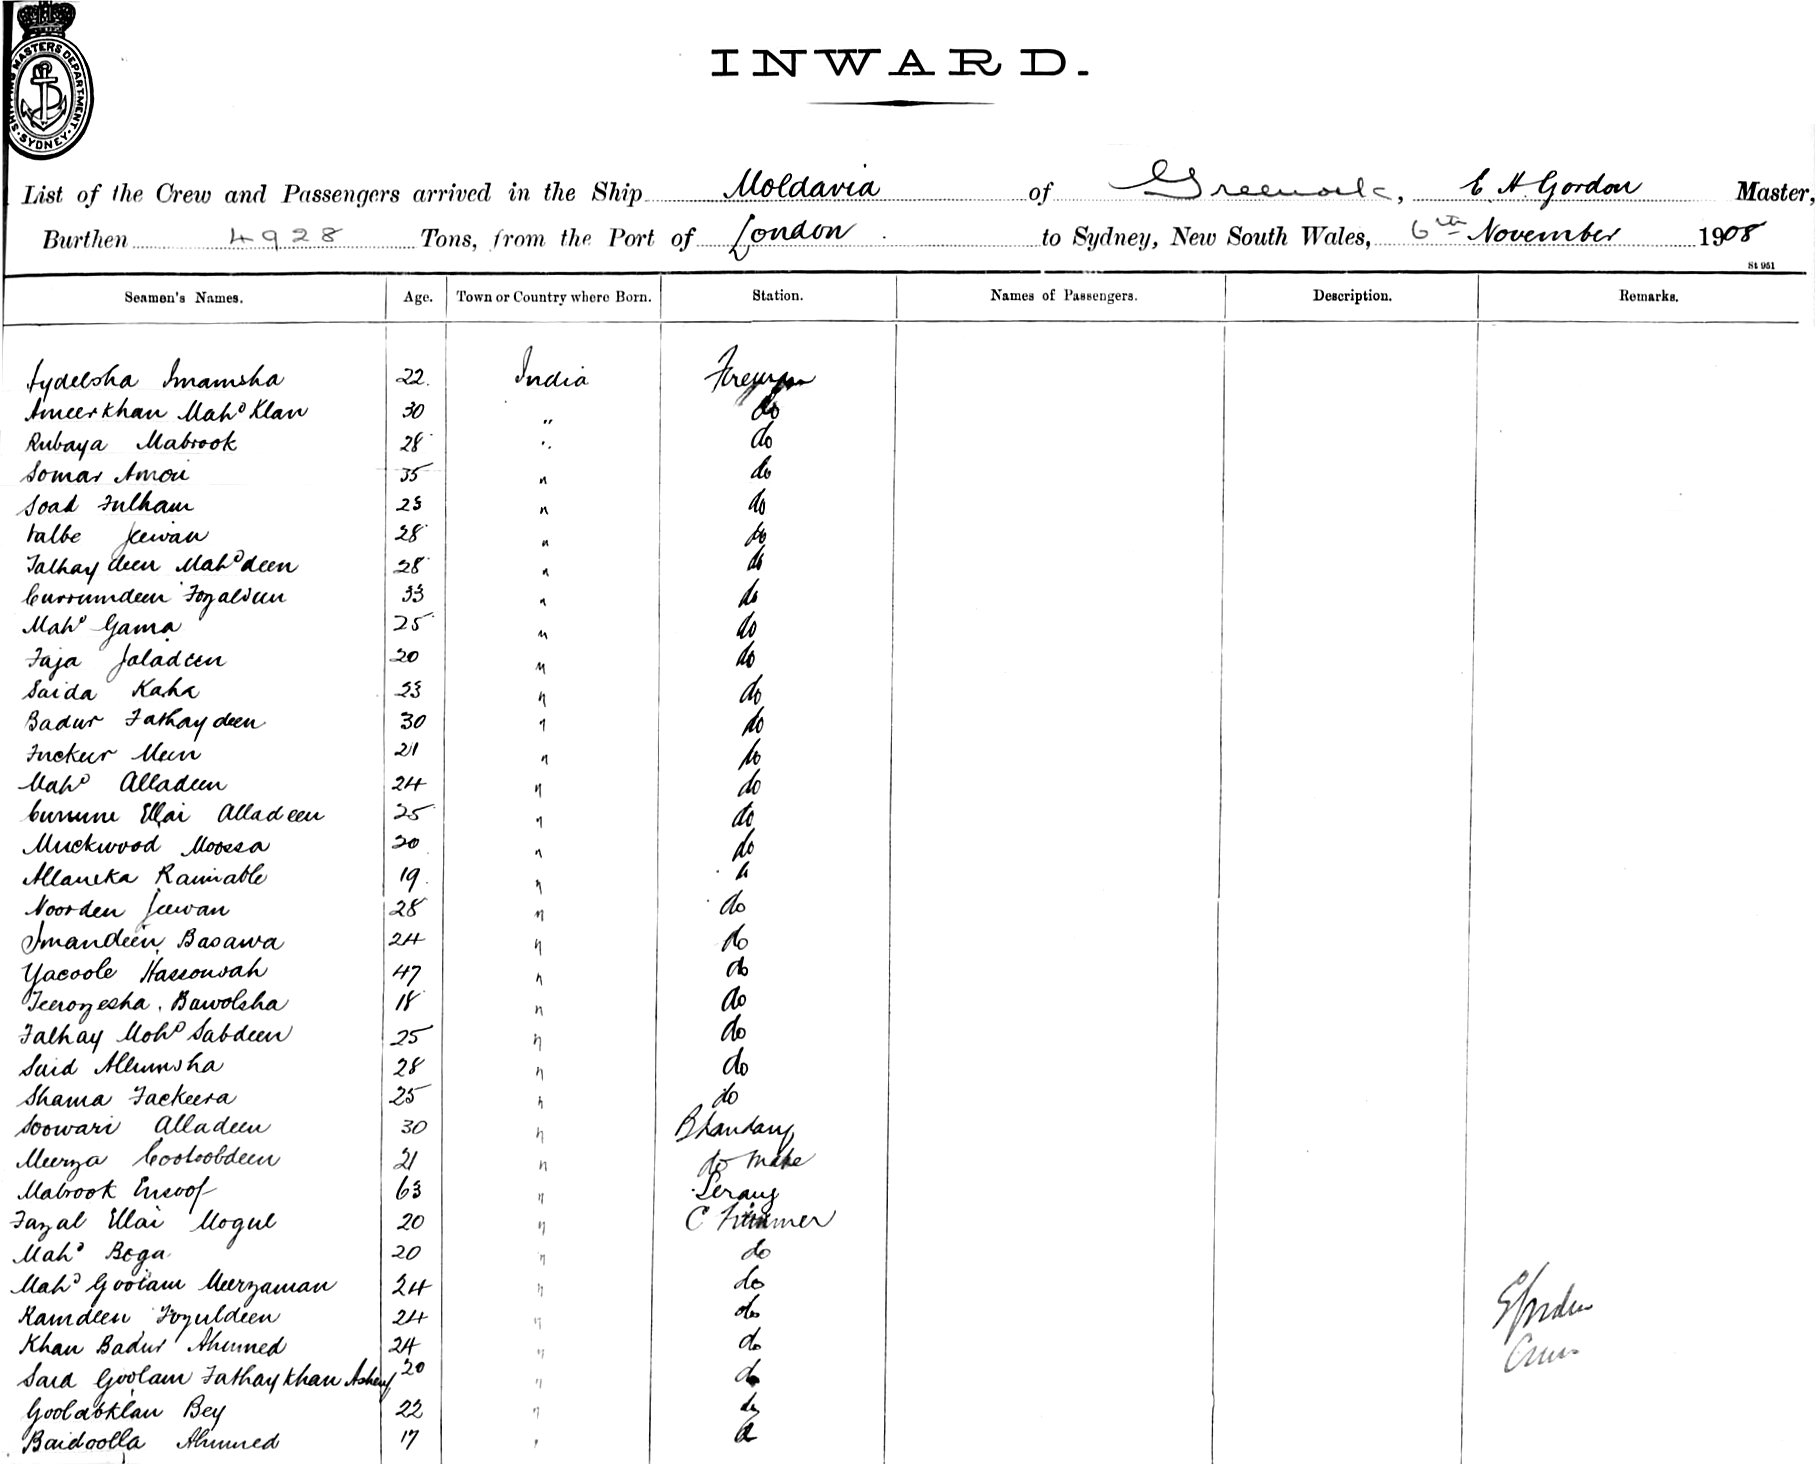 SHIPPING MASTERS DEPARTMENT
SYDNEY
INWARD.
List of the Crew and Passengers arrived in the Ship Moldavia of Greenock, E. H. Gordon Master,
Burthen 4928 Tons, from the Port of London to Sydney, New South Wales, 6th November 1908
St 951
Seamen's Names. Age. Town or Country where Born. Station. Names of Passengers. Description. Remarks.
Sydelsha Imamsha 22. India Fireman
Ameerkhan Mahd Khan 30 " do
Rubaya Mabrook 28 " do
Somar Amou 35 " do
Soad Fulham 23 " do
Valbe Jeewan 28 " do
Fathaydeen Mahd deen 28 " do
Currumdeen Fozaldeen 33 " do
Mahd Gama 25 " do
Faja Jaladeen 20 " do
Saida Kaha 23 " do
Badur Fathaydeen 30 " do
Fuckeer Meen 21 " do
Mahd Alladeen 24 " do
Currume Ellai Alladeen 25 " do
Muckwood Moossa 20 " do
Allaneka Ramiable 19. " do
Noorden Jeewan 28 " do
Imandeen Basawa 24 " do
Yacoole Hassonsah 47 " do
Feerozesha Bawolsha 18 " do
Fathay Mohd Sabdeen 25 " do
Said Allumsha 28 " do
Shama Fackeera 25 " do
Soowari Alladeen 30 " Bhandary
Meerza Cootoobdeen 21 " do mate
Mabrook Ensoof 63 " Serang
Fazal Ellai Mogul 20 " C Trimmer
Mahd Boga 20 " do
Mahd Goolam Meerzaman 24 " do
Ramdeen Fozuldeen 24 " do
Khan Badur Ahmed 24 " do
Said Goolam Fathaykhan 20 " do
Goolabkhan Bey 22 " do
Baidoolla Ahmed 17 " do